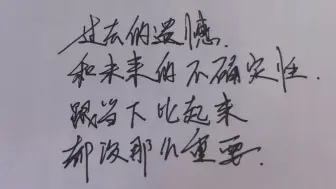 过去的遗憾.
和未来的不确定性.
跟当下比起来
都没那么重要.